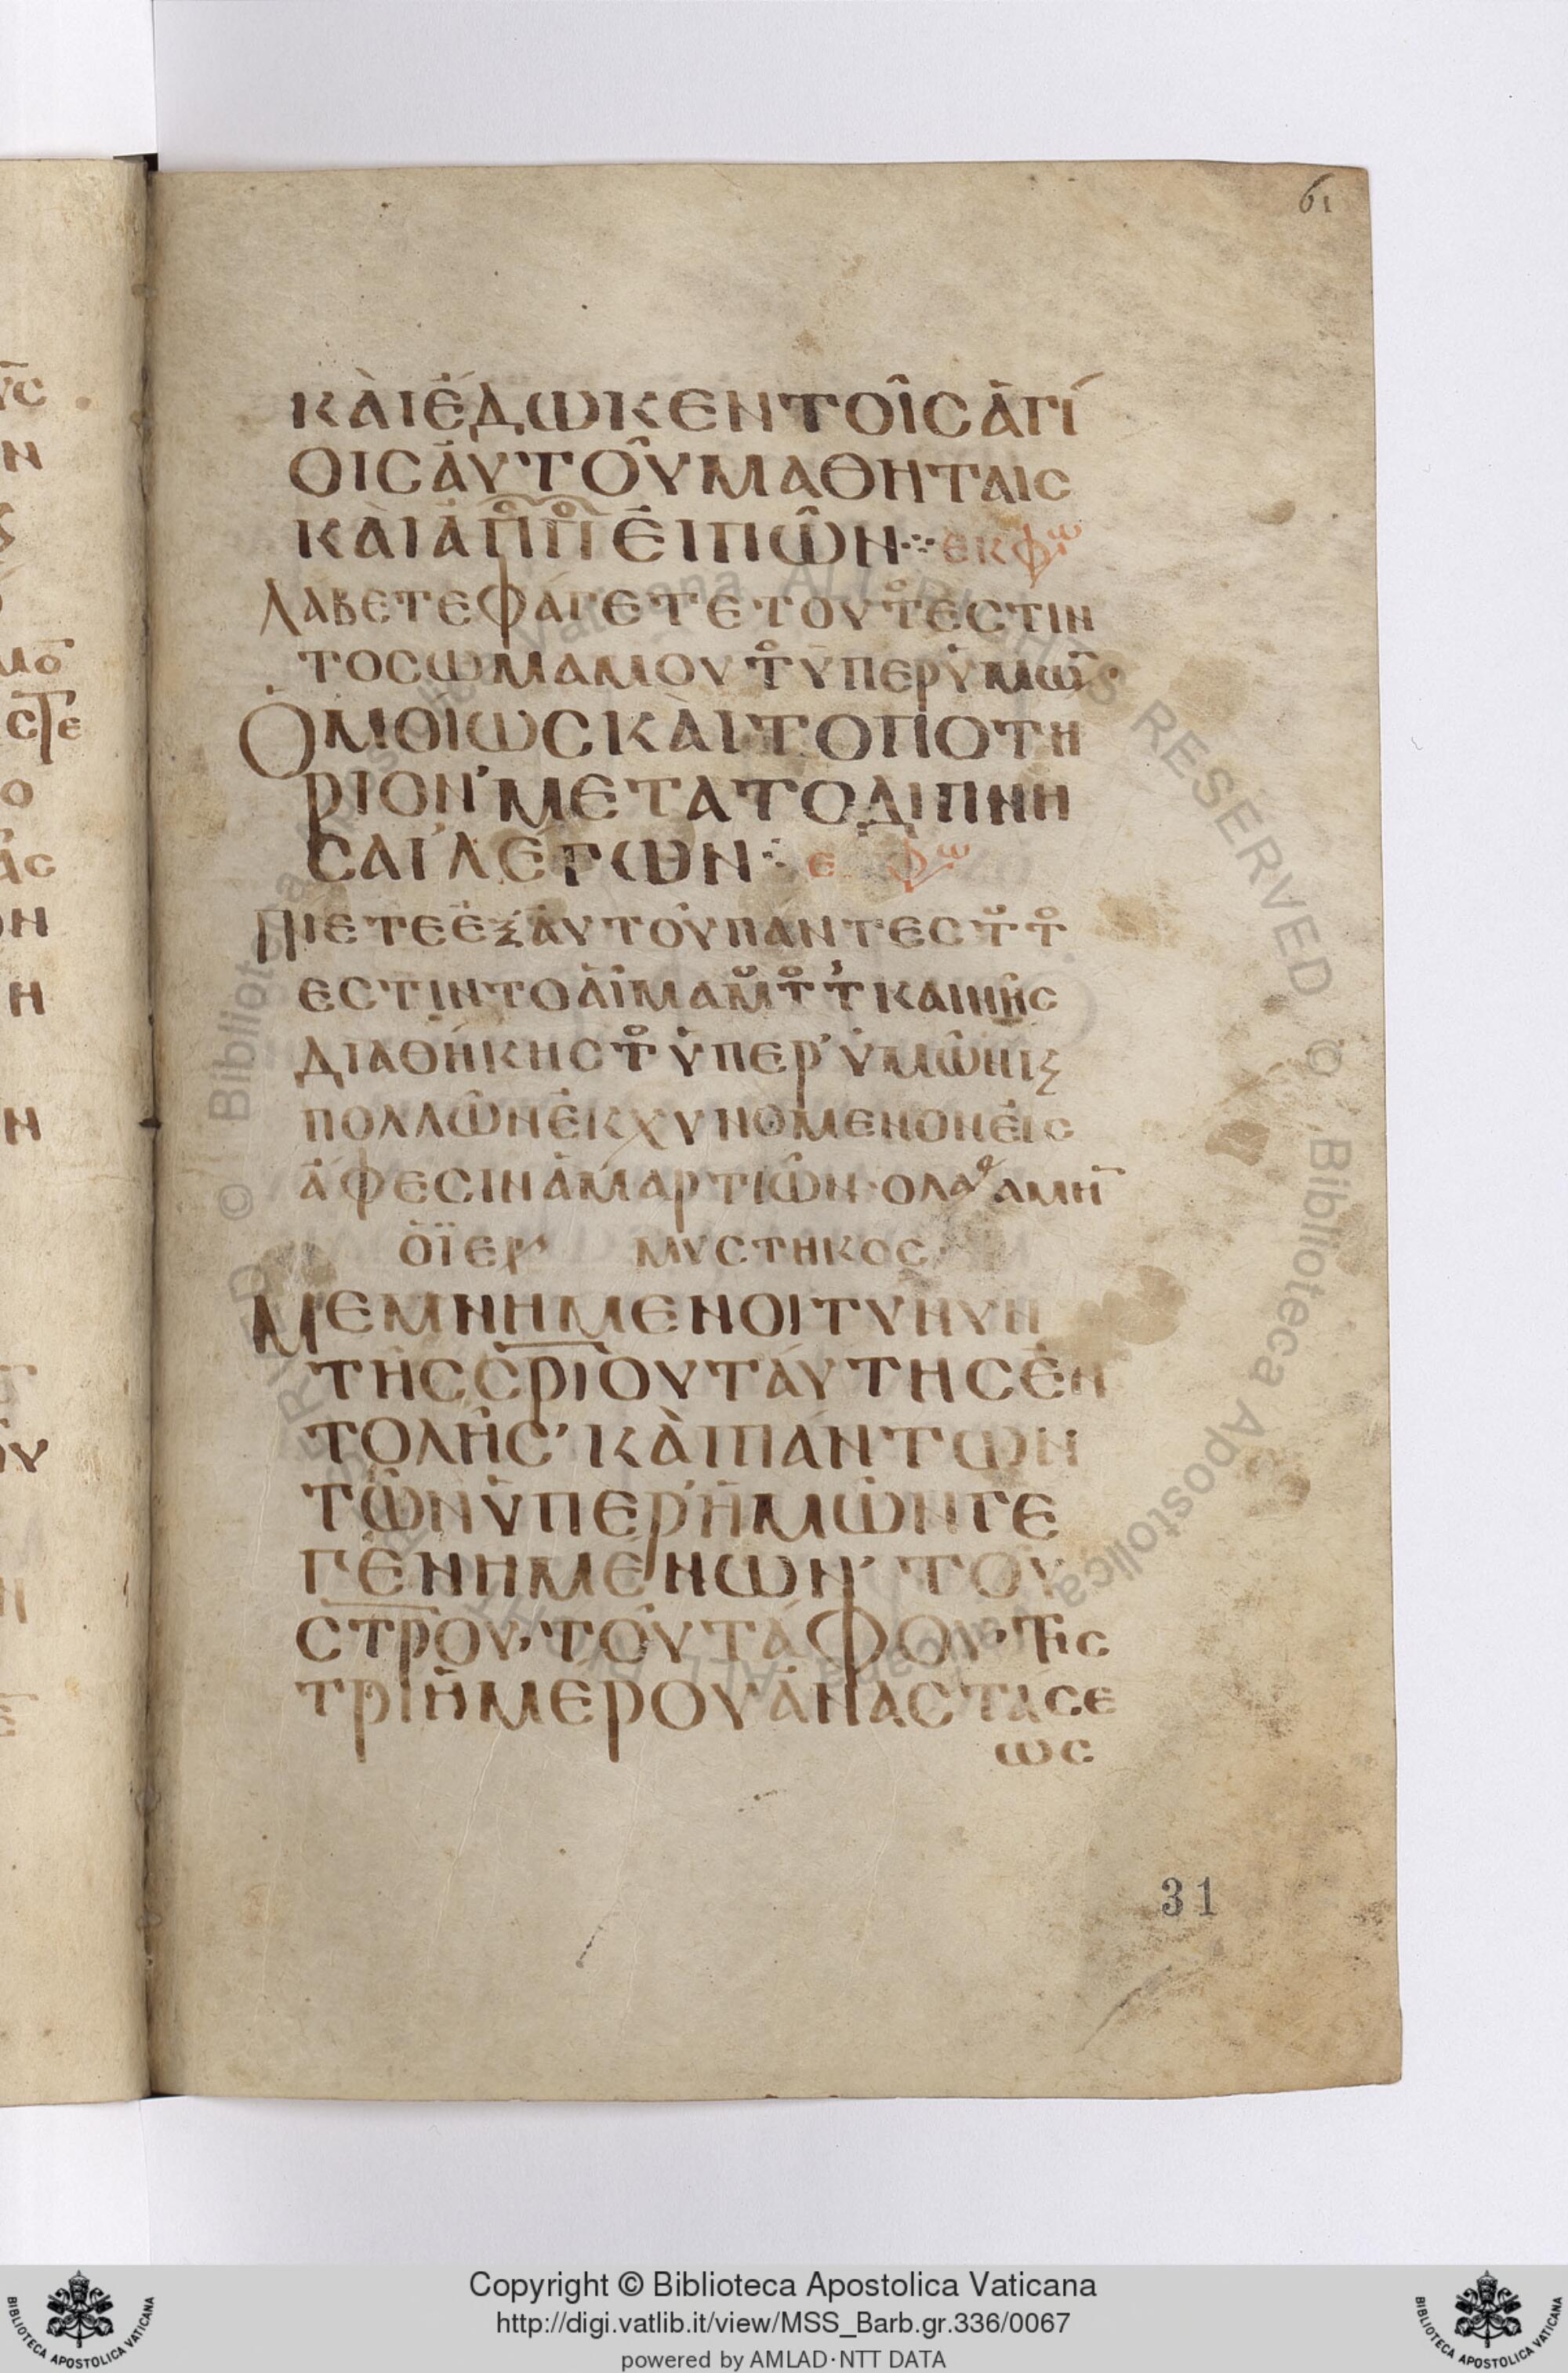 61
ΚΑΙ ΕΔΩΚΕΝ ΤΟΙϹ ΑΓΙ
ΟΙϹ ΑΥΤΟΥ ΜΑΘΗΤΑΙϹ
ΚΑΙ ΑΠΟΠΟ ΕΙΠΩΝ ⁘ ΕΚΦω
ΛΑΒΕΤΕ ΦΑΓΕΤΕ ΤΟΥΤΟ ΕϹΤΙΝ
ΤΟ ϹΩΜΑ ΜΟΥ ΤΟ ΥΠΕΡ ΥΜΩ̄·
ΟΜΟΙΩϹ ΚΑΙ ΤΟ ΠΟΤΗ
ΡΙΟΝ’ ΜΕΤΑ ΤΟ ΔΙΠΝΗ
ϹΑΙ’ ΛΕΓΩΝ ⁘ Ε Φω
ΠΙΕΤΕ ΕΞ ΑΥΤΟΥ ΠΑΝΤΕϹ Τ8Το
ΕϹΤΙΝ ΤΟ ΑΙΜΑ Μ8 Το Τ’ ΚΑΙΝΗϹ
ΔΙΑΘΗΚΗϹ Το ΥΠΕΡ’ ΥΜΩΝ Ϗ
ΠΟΛΛΩΝ ΕΚΧΥΝΟΜΕΝΟΝ ΕΙϹ
ΑΦΕϹΙΝ ΑΜΑΡΤΙΩΝ· Ο ΛΑο ΑΜΗ̄
Ο ΪΕΡ’ ΜΥϹΤΗΚΟϹ·
ΜΕΜΝΗΜΕΝΟΙ ΤΥΝΥΝ
ΤΗϹ Ϲ̅Ρ̅ΙΟΥ ΤΑΥΤΗϹ ΕΝ
ΤΟΛΗϹ’ ΚΑΙ ΠΑΝΤΩΝ
ΤΩΝ ΥΠΕΡ’ ΗΜΩΝ ΓΕ
ΓΕΝΗΜΕΝΩΝ’ ΤΟΥ
Ϲ̅Τ̅Ρ̅ΟΥ· ΤΟΥ ΤΑΦΟΥ· ΤΗϹ
ΤΡΙΗΜΕΡΟΥ ΑΝΑϹΤΑϹΕ
ΩϹ
31
Copyright © Biblioteca Apostolica Vaticana
http://digi.vatlib.it/view/MSS_Barb.gr.336/0067
powered by AMLAD·NTT DATA
BIBLIOTECA APOSTOLICA VATICANA
BIBLIOTECA APOSTOLICA VATICANA